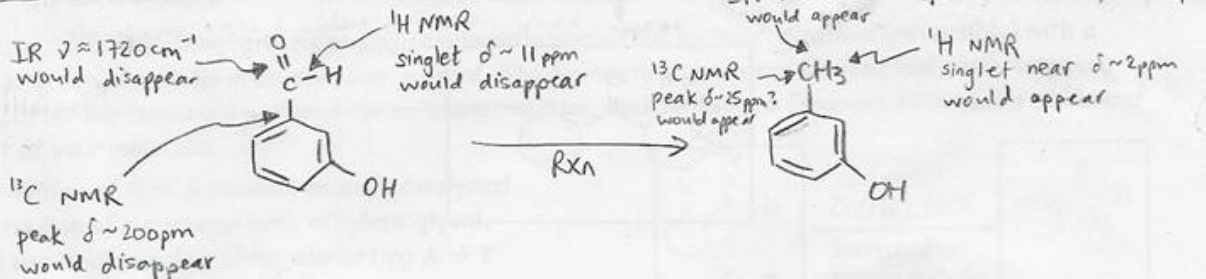 IR ν ≈ 1720 cm⁻¹
would disappear
O
C-H
¹H NMR
singlet δ ~ 11 ppm
would disappear
OH
¹³C NMR
peak δ ~ 200 ppm
would disappear
Rxn
would appear
¹³C NMR
peak δ ~ 25 ppm?
would appear
CH3
¹H NMR
singlet near δ ~ 2 ppm
would appear
OH